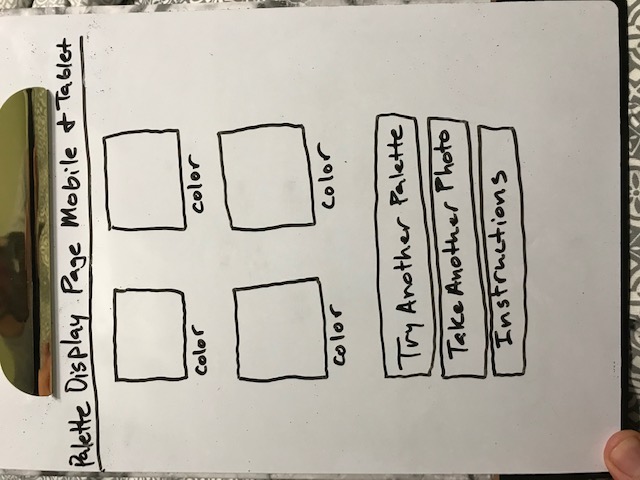 Palette Display Page Mobile & Tablet
color color
color color
Try Another Palette
Take Another Photo
Instructions